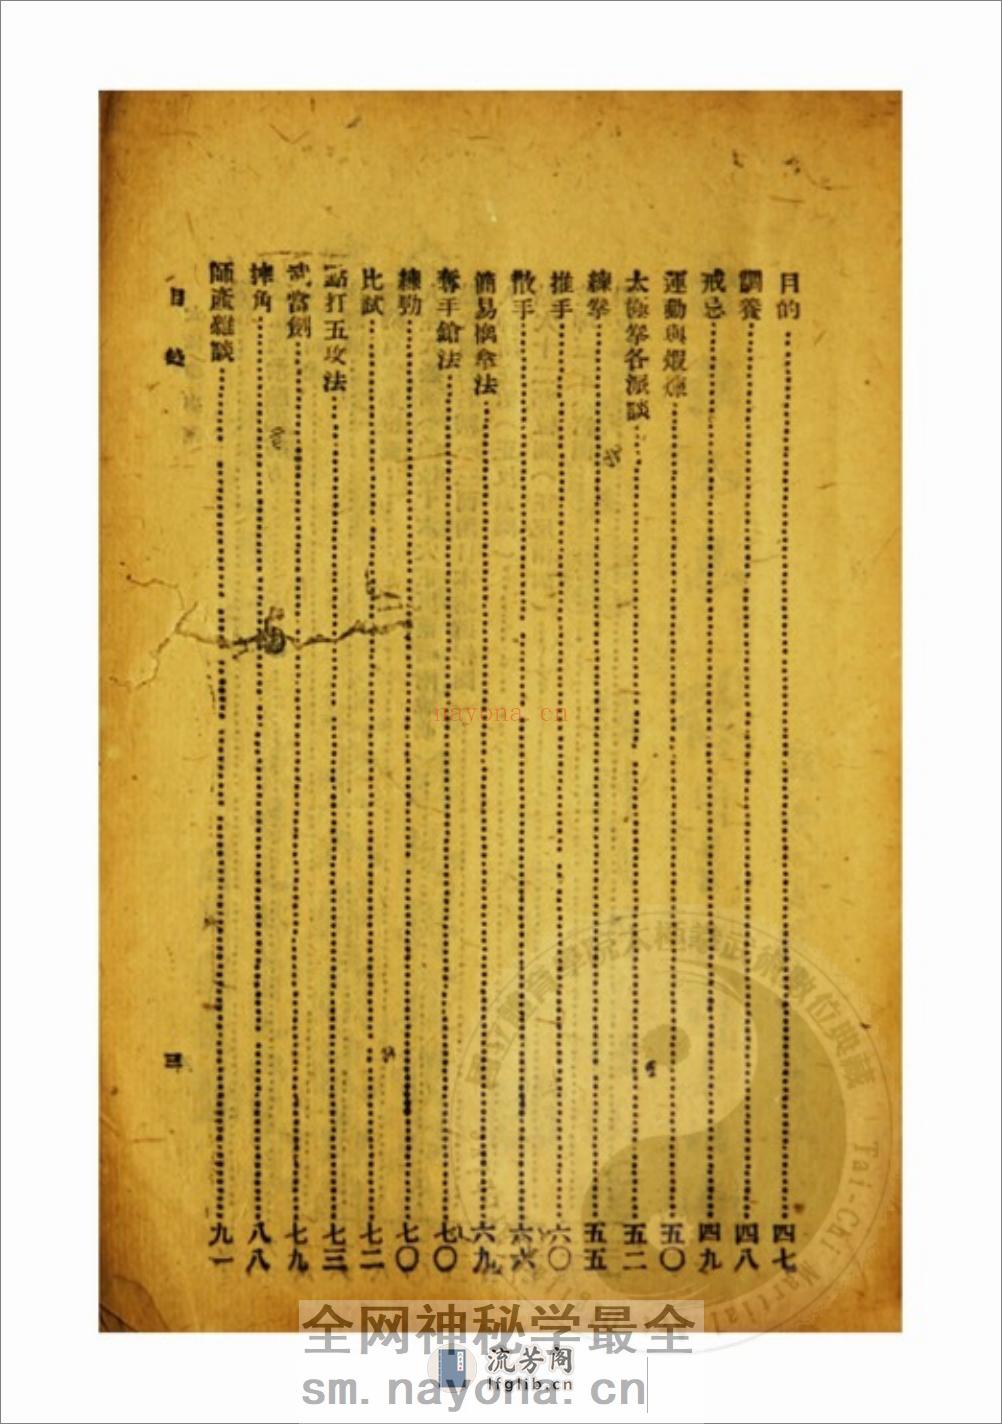 目的⋯⋯四七
調養⋯⋯四八
戒忌⋯⋯四九
運動與煆煉⋯⋯五〇
太極拳各派談⋯⋯五二
練拳⋯⋯五五
推手⋯⋯六〇
散手⋯⋯六六
簡易擒拿法⋯⋯六九
奪手鎗法⋯⋯七〇
練勁⋯⋯七〇
比試⋯⋯七二
點打五攻法⋯⋯七三
武當劍⋯⋯七九
摔角⋯⋯八八
師產雜談⋯⋯九一
目錄
三
nayona.cn
國立體育學院太極拳武術數位典藏
Tai-Chi Martial
全网神秘学最全
流芳阁
lfglib.cn
sm.nayona.cn